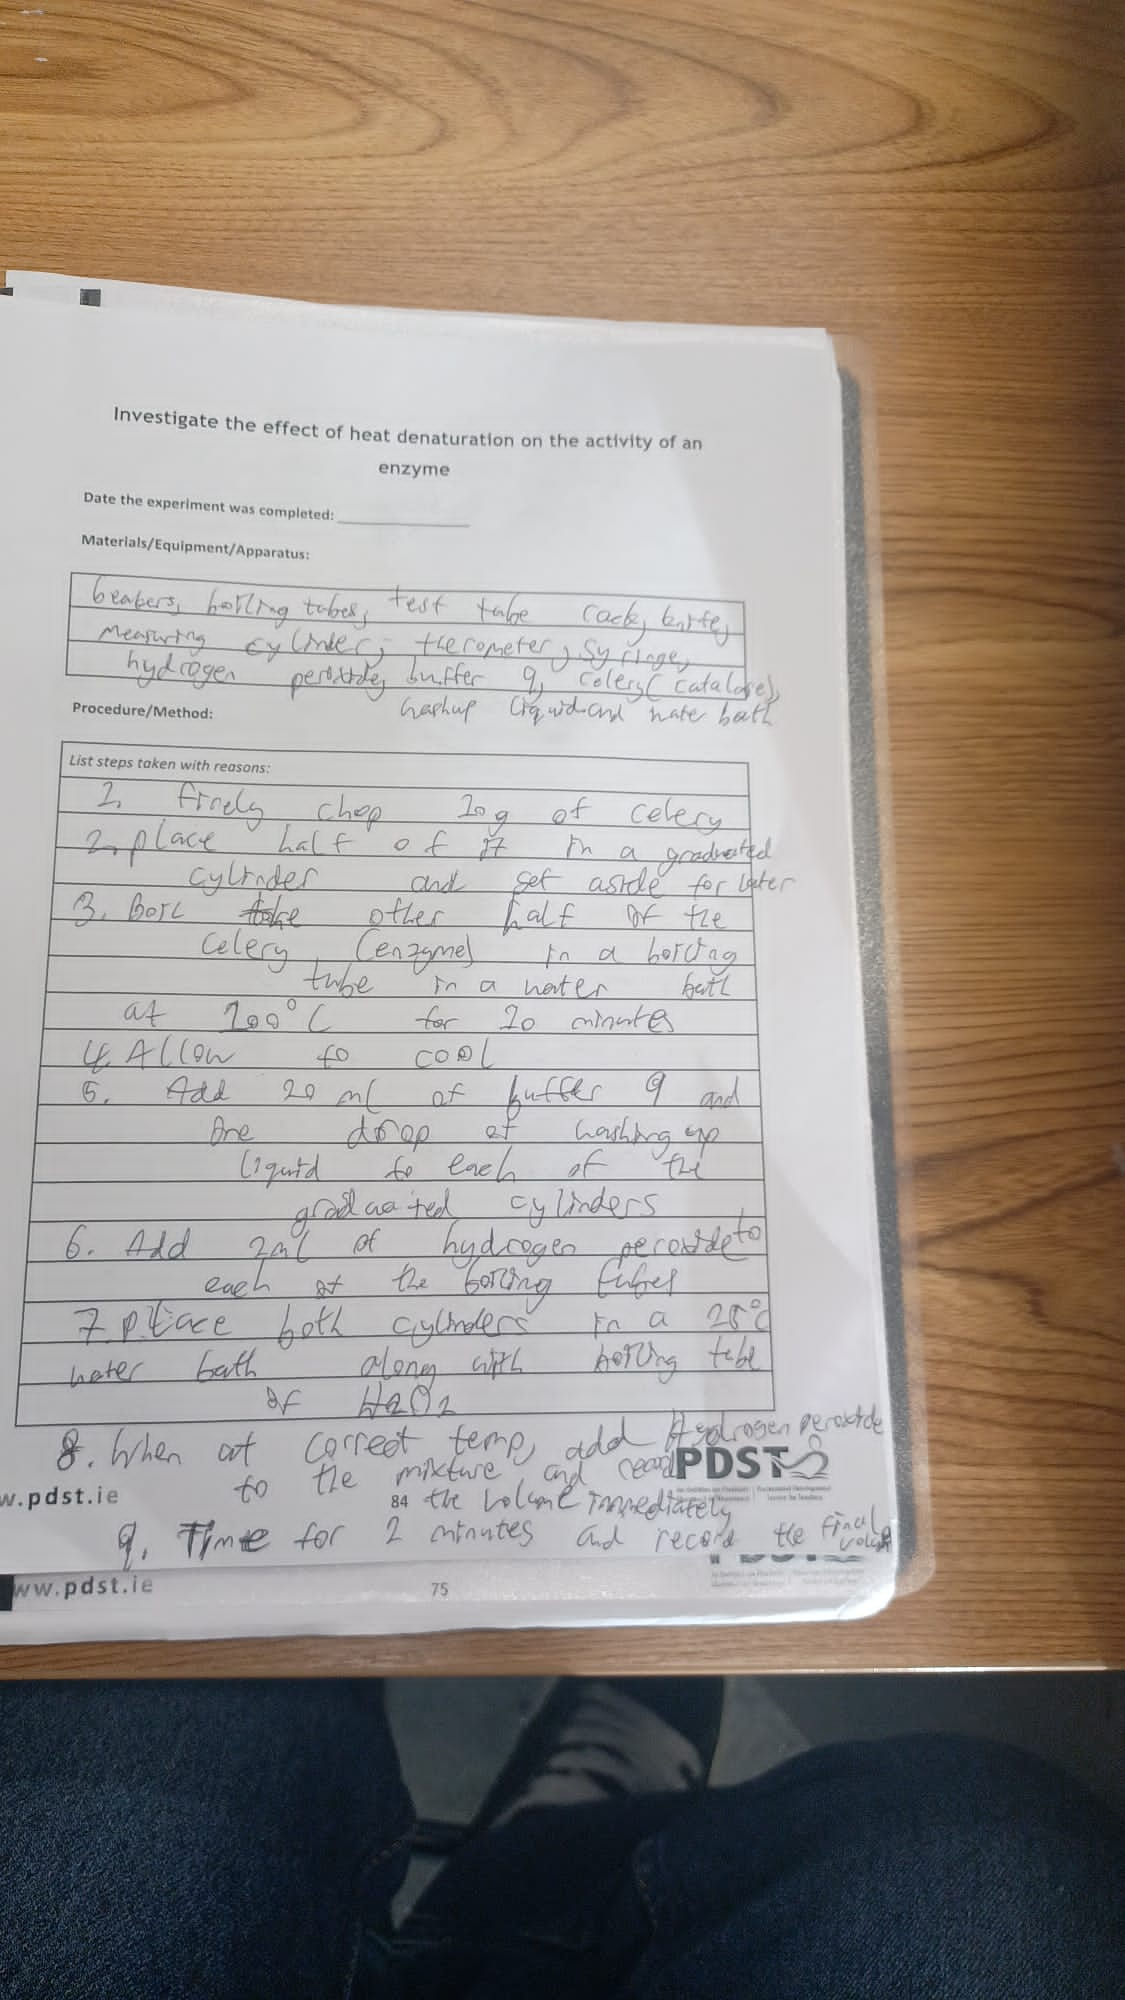 Investigate the effect of heat denaturation on the activity of an
enzyme
Date the experiment was completed:
Materials/Equipment/Apparatus:
beakers, boiling tubes, test tube rack, knife,
measuring cylinder, therometer, syringe,
hydrogen peroxide, buffer 9, celery (catalase),
washup liquid and water bath
Procedure/Method:
List steps taken with reasons:
1. Finely chop 10g of celery
2. place half of it in a graduated
cylinder and set aside for later
3. Boil the other half of the
celery (enzyme) in a boiling
tube in a water bath
at 100°C for 10 minutes
4. Allow to cool
5. Add 20 ml of buffer 9 and
one drop of washing up
liquid to each of the
graduated cylinders
6. Add 2ml of hydrogen peroxide to
each of the boiling tubes
7. place both cylinders in a 25°C
water bath along with boiling tube
of H2O2
8. When at correct temp, add Hydrogen peroxide
to the mixture, and read
the volume immediately
PDST
w.pdst.ie
84
9. Time for 2 minutes and record the final
volume
ww.pdst.ie
75